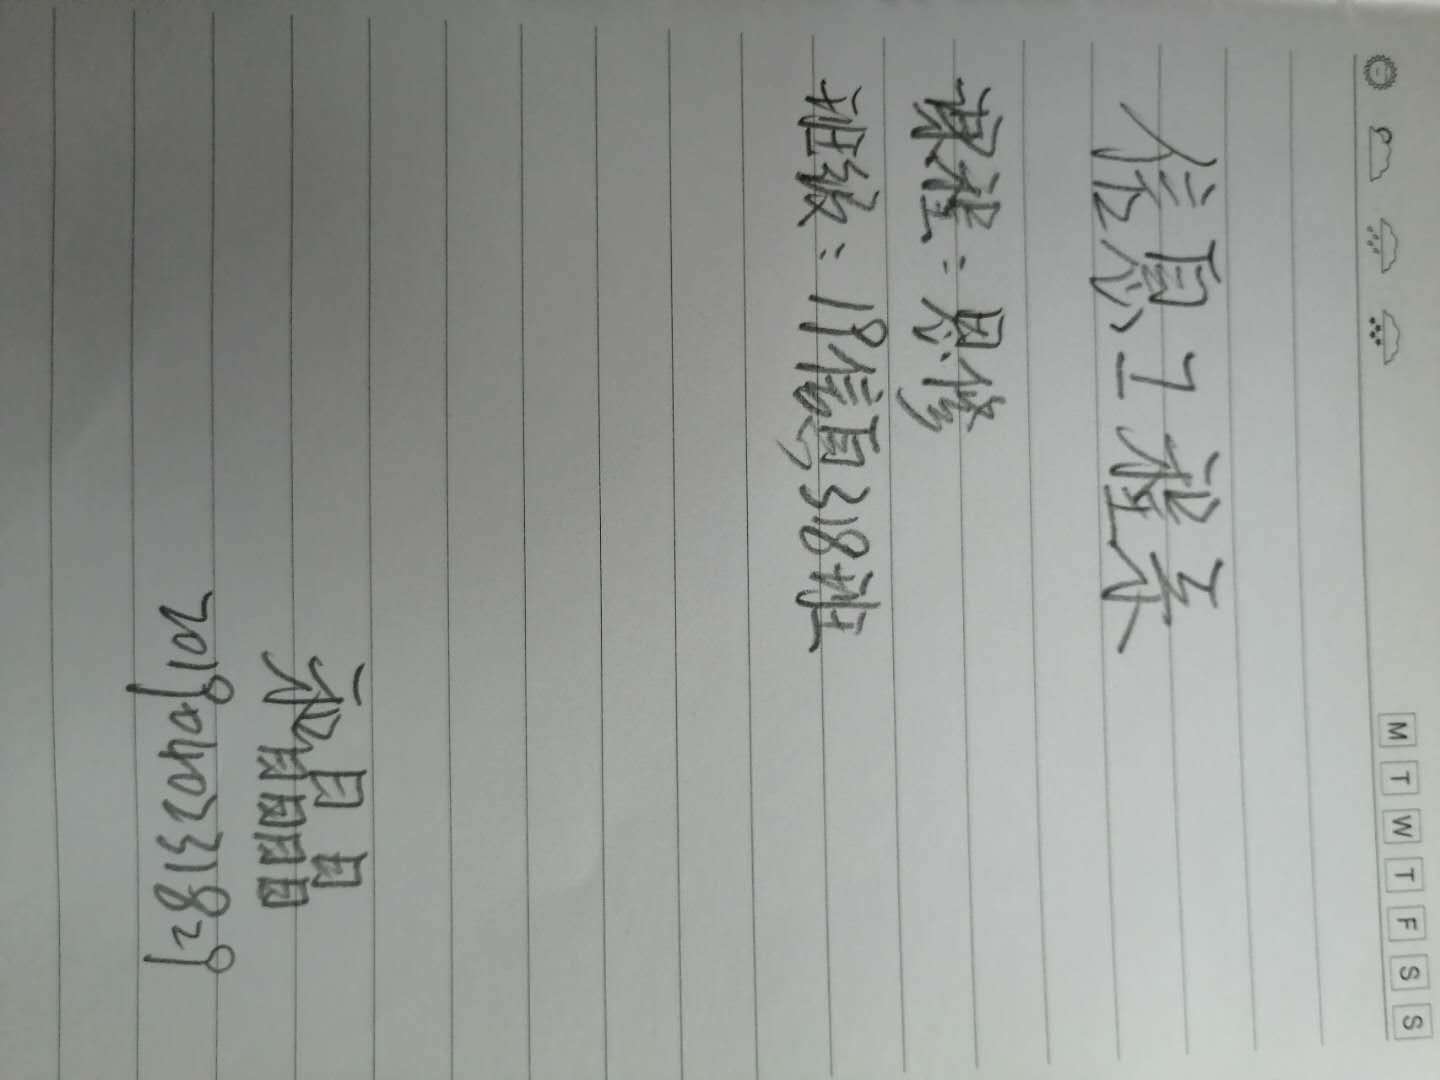 M T W T F S S
信息工程系
课程：思修
班级：19信息318班
晶晶
2019040231829